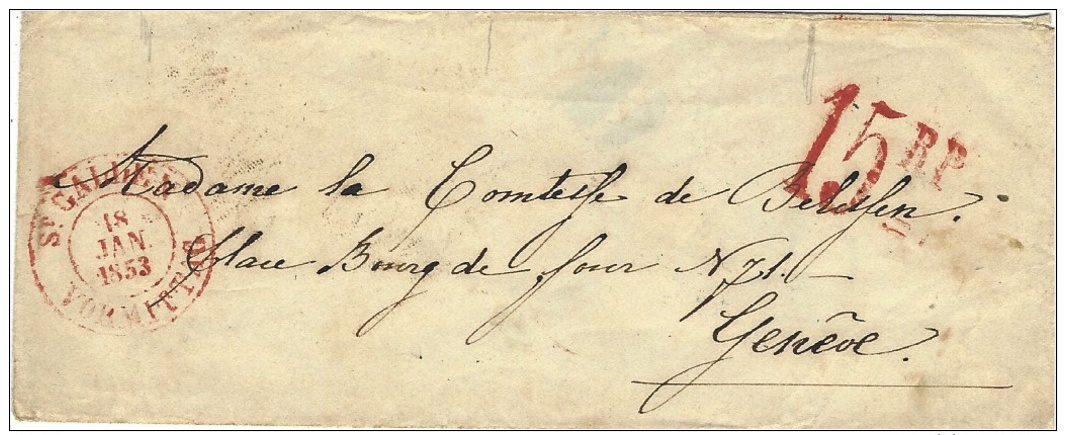 St GALLEN
18
JAN
1853
VORMITTAG
15 RP
Madame la Comtesse de
Place Bourg de four N 71.
Genève.